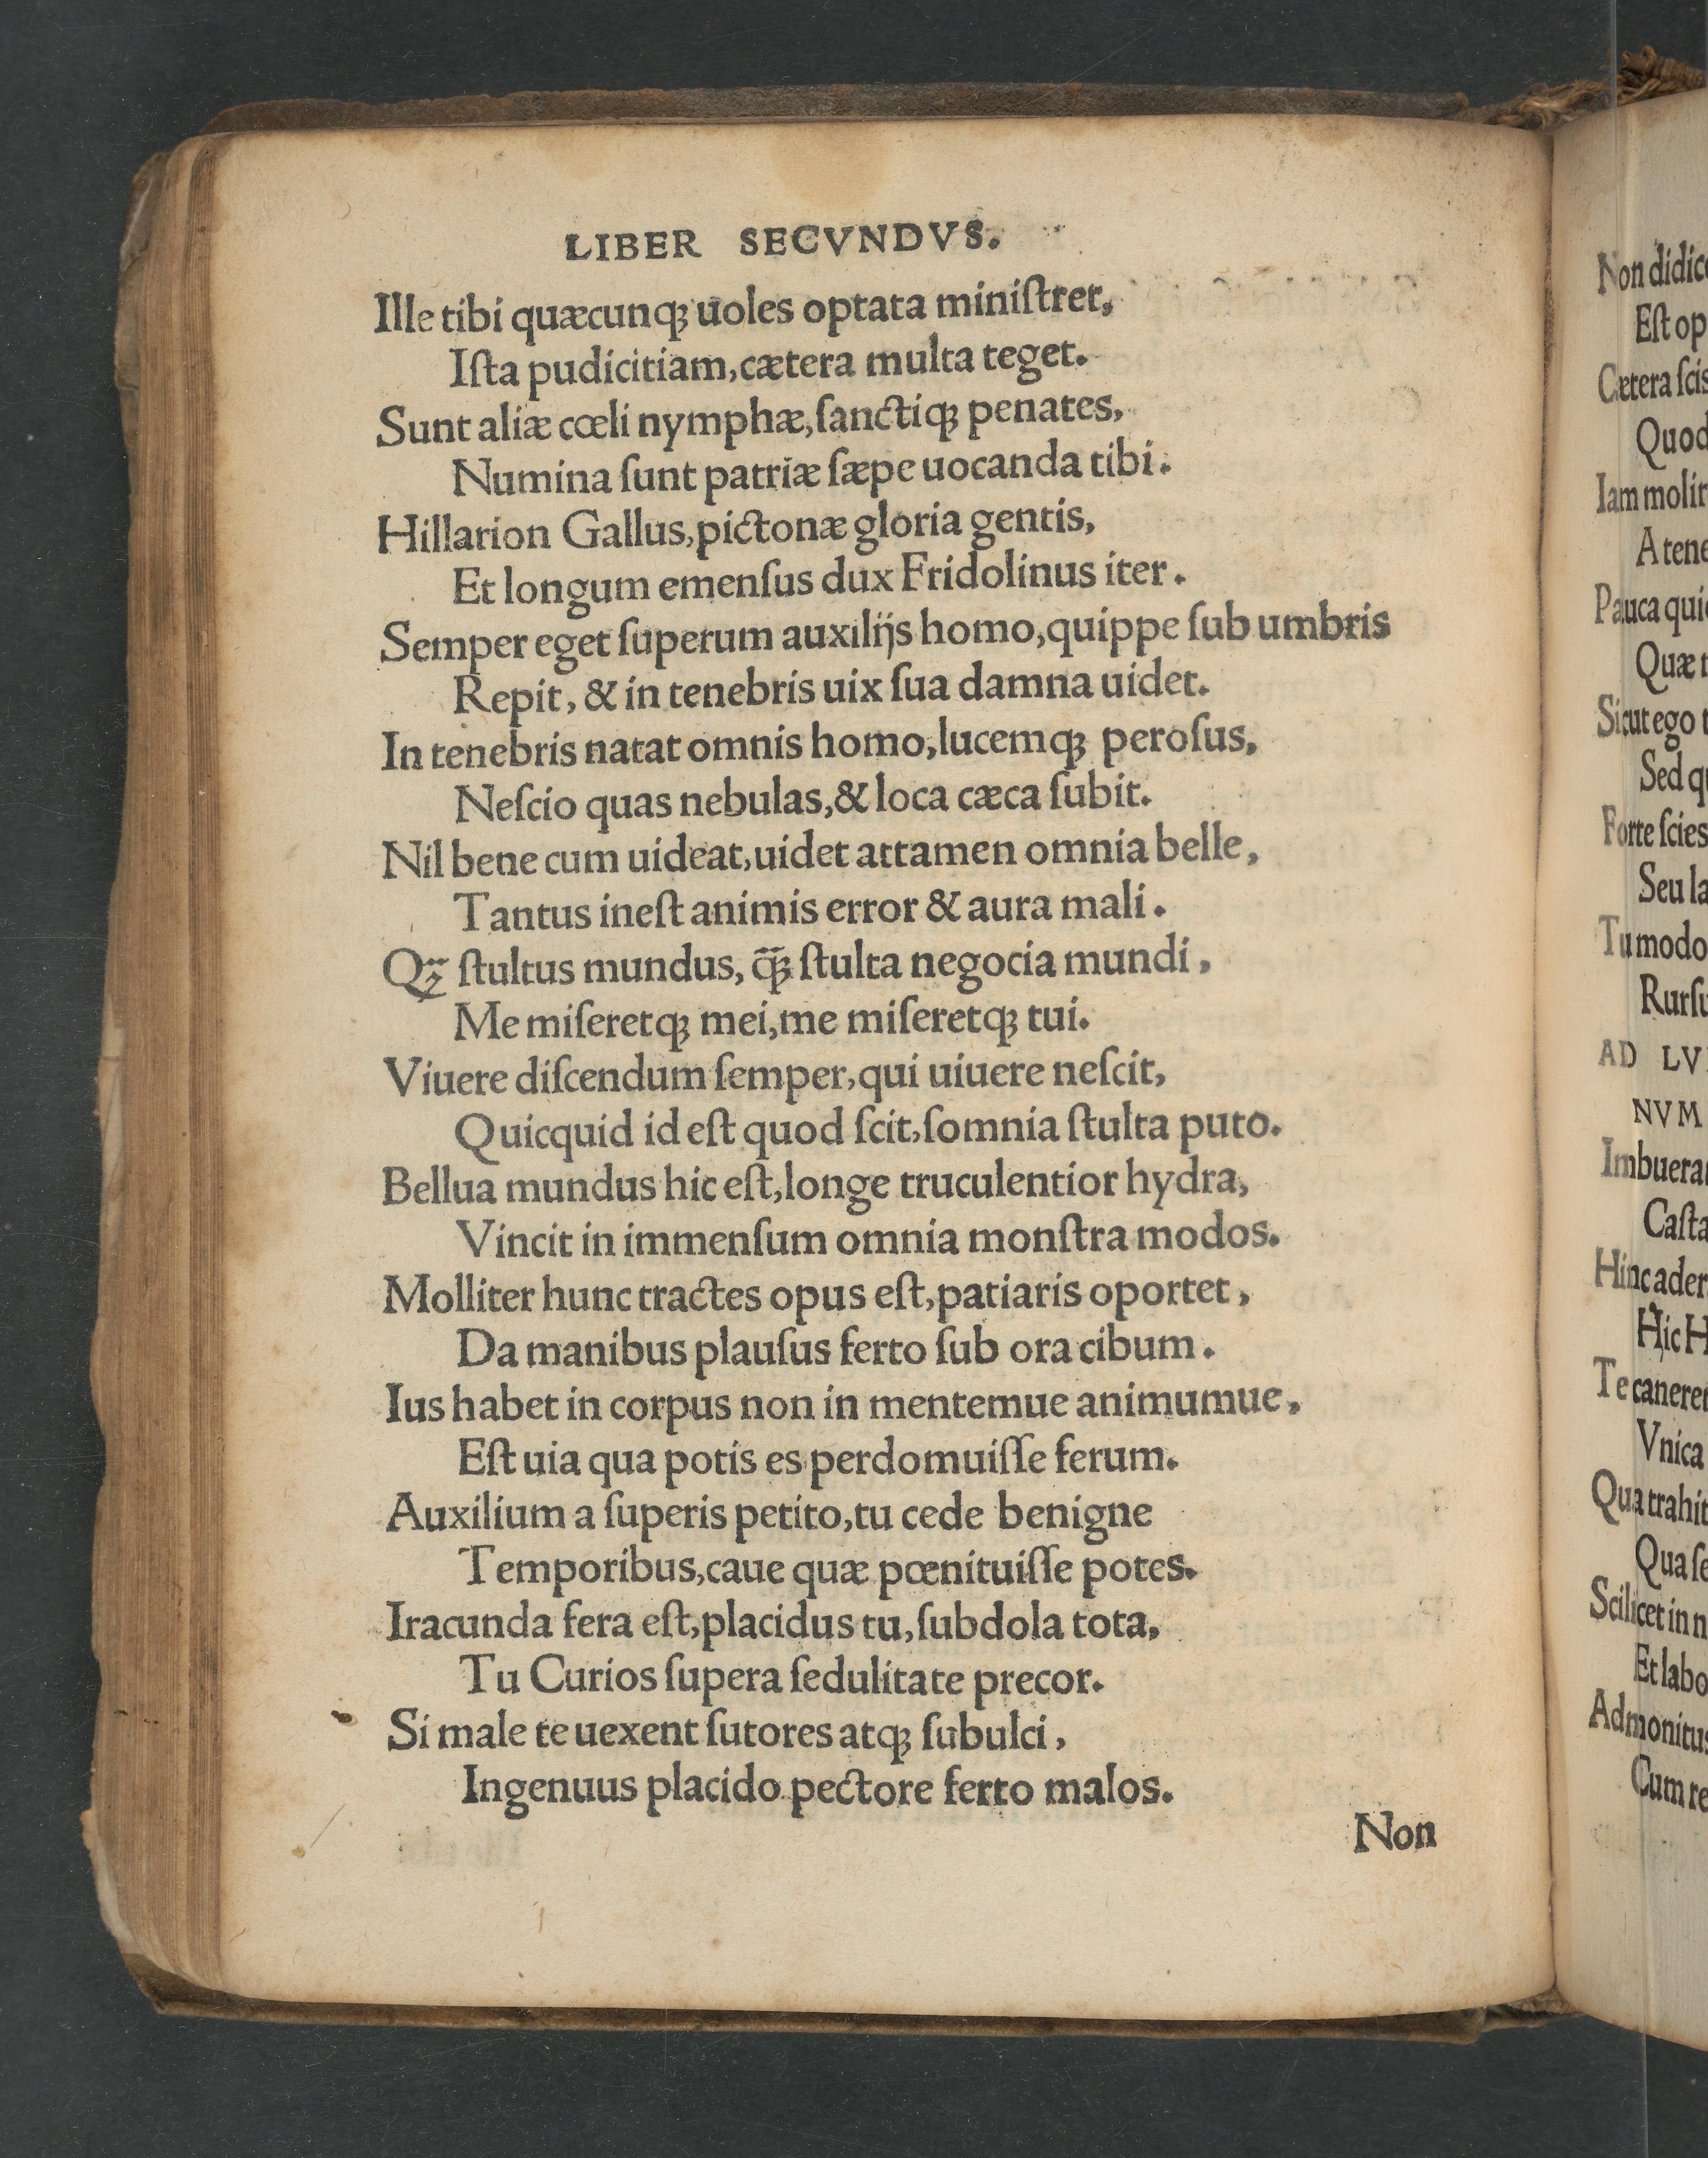 LIBER SECVNDVS.
Ille tibi quæcunqꝫ uoles optata miniſtret,
Iſta pudicitiam, cætera multa teget.
Sunt aliæ cœli nymphæ, ſanctiqꝫ penates,
Numina ſunt patriæ ſæpe uocanda tibi.
Hillarion Gallus, pictonæ gloria gentis,
Et longum emenſus dux Fridolinus iter.
Semper eget ſuperum auxilijs homo, quippe ſub umbris
Repit, & in tenebris uix ſua damna uidet.
In tenebris natat omnis homo, lucemqꝫ peroſus,
Neſcio quas nebulas, & loca cæca ſubit.
Nil bene cum uideat, uidet attamen omnia belle,
Tantus ineſt animis error & aura mali.
Qꝫ̃ ſtultus mundus, qꝫ̃ ſtulta negocia mundi,
Me miſeretqꝫ mei, me miſeretqꝫ tui.
Viuere diſcendum ſemper, qui uiuere neſcit,
Quicquid id eſt quod ſcit, ſomnia ſtulta puto.
Bellua mundus hic eſt, longe truculentior hydra,
Vincit in immenſum omnia monſtra modos.
Molliter hunc tractes opus eſt, patiaris oportet,
Da manibus plauſus ferto ſub ora cibum.
Ius habet in corpus non in mentemue animumue,
Eſt uia qua potis es perdomuiſſe ferum.
Auxilium a ſuperis petito, tu cede benigne
Temporibus, caue quæ pœnituiſſe potes.
Iracunda fera eſt, placidus tu, ſubdola tota,
Tu Curios ſupera ſedulitate precor.
Si male te uexent ſutores atqꝫ ſubulci,
Ingenuus placido pectore ferto malos.
Non
Non
Eſt
Cætera ſcis
Iam
A
Pauca
Quæ
Sicut ego
Sed
Forte ſcies
Seu
Tu modo
AD
NVM
Hic
Vnica
Qua trahit
Qua
Scilicet in
Et
Cum